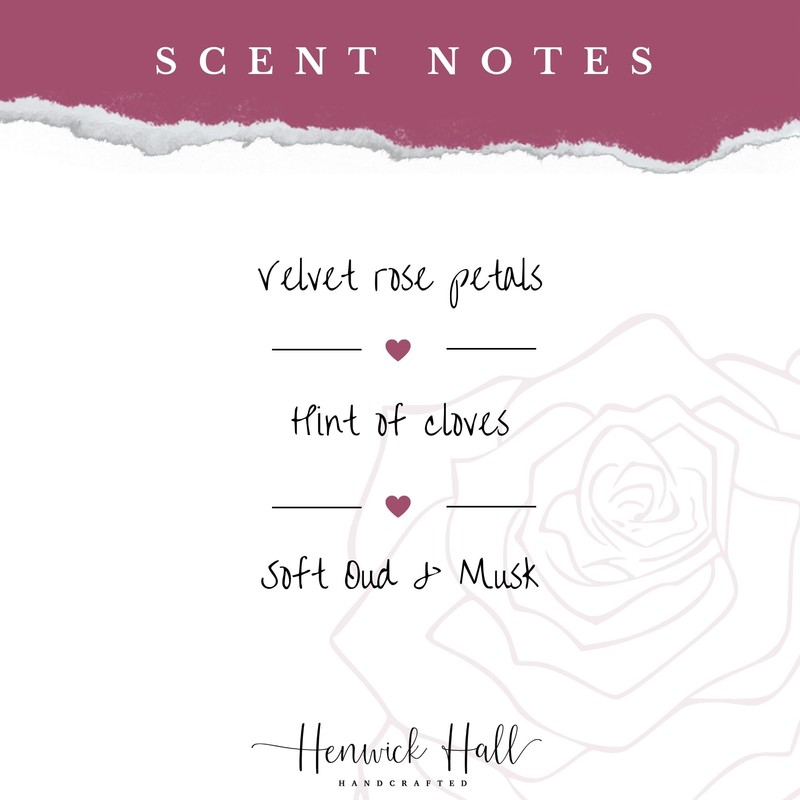 SCENT NOTES
Velvet rose petals
Hint of cloves
Soft Oud & Musk
Henwick Hall
HANDCRAFTED